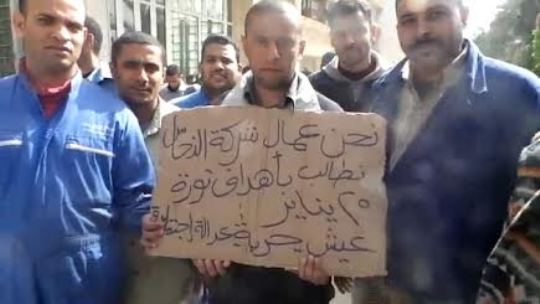 نحن عمال شركة النحاس
نطالب بأهداف ثورة
٢٥ يناير
عيش حرية عدالة إجتماعية